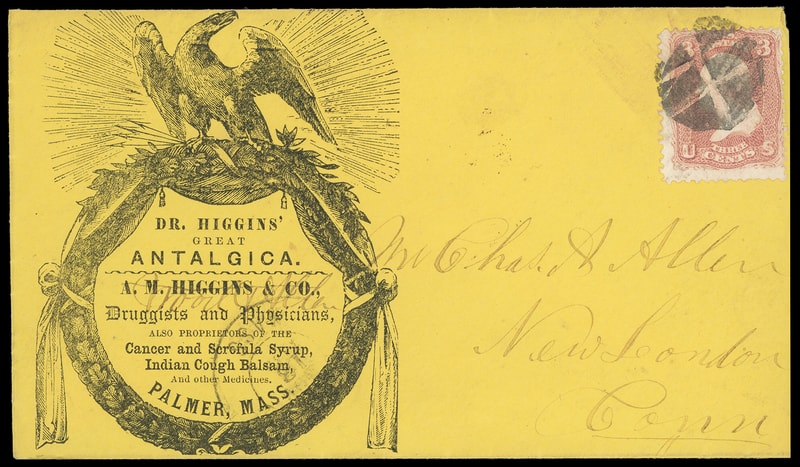 DR. HIGGINS'
GREAT
ANTALGICA.
A. M. HIGGINS & CO.,
Druggists and Physicians,
ALSO PROPRIETORS OF THE
Cancer and Scrofula Syrup,
Indian Cough Balsam,
And other Medicines.
PALMER, MASS.
3 3
U S
CENTS
Mr Chas. A Allen
New London
Conn